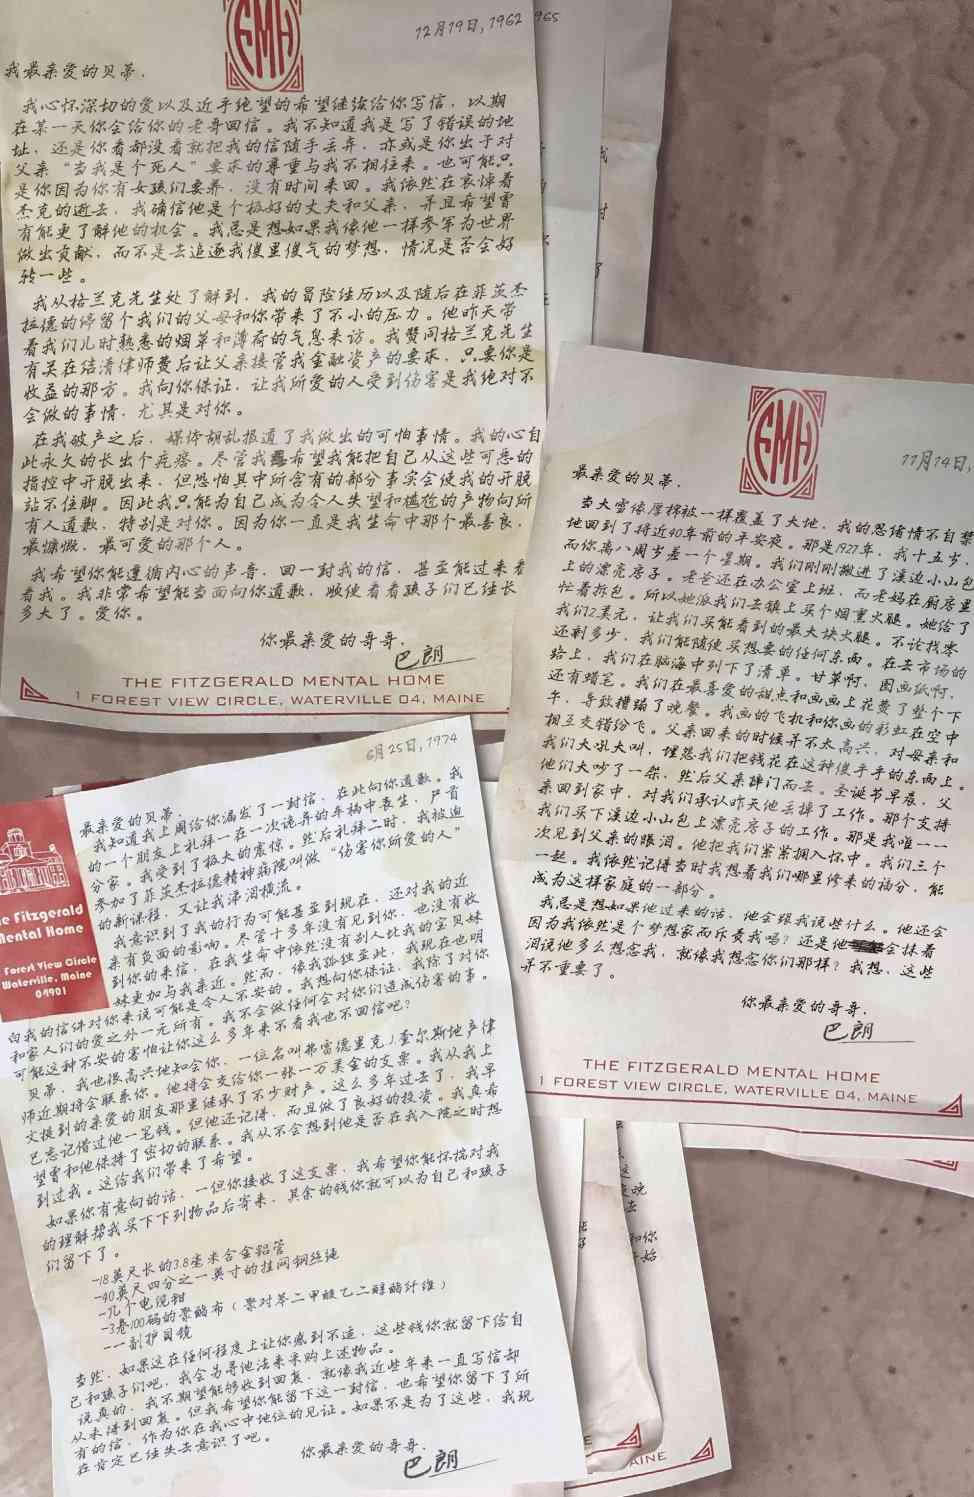 FMH
12月19日,1962
965
我最亲爱的贝蒂.
我心怀深切的爱以及近乎绝望的希望继续给你写信，以期
在某一天你会给你的老哥回信。我不知道我是写了错误的地
址，还是你看都没看就把我的信随手丢弃，亦或是你出于对
父亲“当我是个死人”要求的尊重与我不相往来。也可能只
是你因为你有女孩们要养，没有时间来回。我依然在哀悼着
杰克的逝去，我确信他是个极好的丈夫和父亲，并且希望曾
有能更了解他的机会。我总是想如果我像他一样参军为世界
做出贡献，而不是去追逐我傻里傻气的梦想，情况是否会好
转一些。
我从格兰克先生处了解到，我的冒险经历以及随后在菲茨杰
拉德的停留个我们的父母和你带来了不小的压力。他昨天带
着我们儿时熟悉的烟草和薄荷的气息来访。我赞同格兰克先生
有关在结清律师费后让父亲接管我金融资产的要求，只要你是
收益的那方。我向你保证，让我所爱的人受到伤害是我绝对不
会做的事情，尤其是对你。
在我破产之后，媒体胡乱报道了我做出的可怕事情。我的心自
此永久的长出个疙瘩。尽管我希望我能把自己从这些可恶的
指控中开脱出来，但恐怕其中所含有的部分事实会使我的开脱
站不住脚。因此我只能为自己成为令人失望和尴尬的产物向所
有人道歉，特别是对你。因为你一直是我生命中那个最善良，
最慷慨，最可爱的那个人。
我希望你能遵循内心的声音，回一封我的信，甚至能过来看
看我。我非常希望能当面向你道歉，顺便看看孩子们已经长
多大了。爱你。
你最亲爱的哥哥.
巴朗
THE FITZGERALD MENTAL HOME
1 FOREST VIEW CIRCLE, WATERVILLE 04, MAINE
FMH
11月14日,
最亲爱的贝蒂.
当大雪像厚棉被一样覆盖了大地，我的思绪情不自禁
地回到了将近40年前的平安夜。那是1927年，我十五岁，
而你离八周岁差一个星期。我们刚刚搬进了溪边小山包
上的漂亮房子。老爸还在办公室上班，而老妈在厨房里
忙着拆包。所以她派我们去镇上买个烟熏火腿。她给了
我们2美元，让我们买能看到的最大块火腿。不论找零
还剩多少，我们能随便买想要的任何东西。在去市场的
路上，我们在脑海中列下了清单。甘草啊，图画纸啊，
还有蜡笔。我们在最喜爱的甜点和画画上花费了整个下
午，导致糟蹋了晚餐。我画的飞机和你画的彩虹在空中
相互交错纷飞。父亲回来的时候并不太高兴，对母亲和
我们大吼大叫，埋怨我们把钱花在这种傻乎乎的东西上。
他们大吵了一架，然后父亲摔门而去。圣诞节早晨，父
亲回到家中，对我们承认昨天他丢掉了工作。那个支持
我们买下溪边小山包上漂亮房子的工作。那是我唯一一
次见到父亲的眼泪。他把我们紧紧拥入怀中。我们三个
一起。我依然记得当时我想着我们哪里修来的福分，能
成为这样家庭的一部分。
我总是想如果他过来的话，他会跟我说些什么。他还会
因为我依然是个梦想家而斥责我吗？还是他会抹着
泪说他多么想念我，就像我想念你们那样？我想，这些
并不重要了。
你最亲爱的哥哥.
巴朗
THE FITZGERALD MENTAL HOME
1 FOREST VIEW CIRCLE, WATERVILLE 04, MAINE
6月25日,1974
he Fitzgerald
Mental Home
Forest View Circle
Waterville, Maine
04901
最亲爱的贝蒂.
我知道我上周给你漏发了一封信，在此向你道歉。我
的一个朋友上礼拜一在一次诡异的车祸中丧生，尸首
分家。我受到了极大的震惊。然后礼拜二时，我被迫
参加了菲茨杰拉德精神病院叫做“伤害你所爱的人”
的新课程，又让我涕泪横流。
我意识到了我的行为可能甚至到现在，还对我的近
亲有负面的影响。尽管十多年没有见到你，也没有收
到你的来信，在我生命中依然没有别人比我的宝贝妹
妹更加与我亲近。然而，像我孤独至此，我现在也明
白我的信件对你来说可能是令人不安的。我想向你保证，我除了对你
和家人们的爱之外一无所有。我不会做任何会对你们造成伤害的事。
可能这种不安的害怕让你这么多年来不看我也不回信吧？
贝蒂，我也很高兴地知会你，一位名叫弗雷德里克·查尔斯地产律
师近期将会联系你。他将会交给你一张一万美金的支票。我从我上
文提到的亲爱的朋友那里继承了不少财产。这么多年过去了，我早
已忘记借过他一笔钱。但他还记得，而且做了良好的投资。我真希
望曾和他保持了密切的联系。我从不会想到他是否在我入院之时想
到过我。这给我们带来了希望。
如果你有意向的话，一但你接收了这支票，我希望你能怀揣对我
的理解帮我买下下列物品后寄来，其余的钱你就可以为自己和孩子
们留下了。
-18英尺长的3.8毫米合金铝管
-40英尺四分之一英寸的挂网钢丝绳
-几个电缆钳
-3卷100码的聚酯布（聚对苯二甲酸乙二醇酯纤维）
-一副护目镜
当然，如果这在任何程度上让你感到不适，这些钱你就留下给自
己和孩子们吧，我会另寻他法来采购上述物品。
说真的，我不期望能够收到回复，就像我近些年来一直写信却
从未得到回复。但我希望你能留下这一封信，也希望你留下了所
有的信，作为你在我心中地位的见证。如果不是为了这些，我现
在肯定已经失去意识了吧。
你最亲爱的哥哥.
巴朗
晚
去
和你
始
INE
MAINE